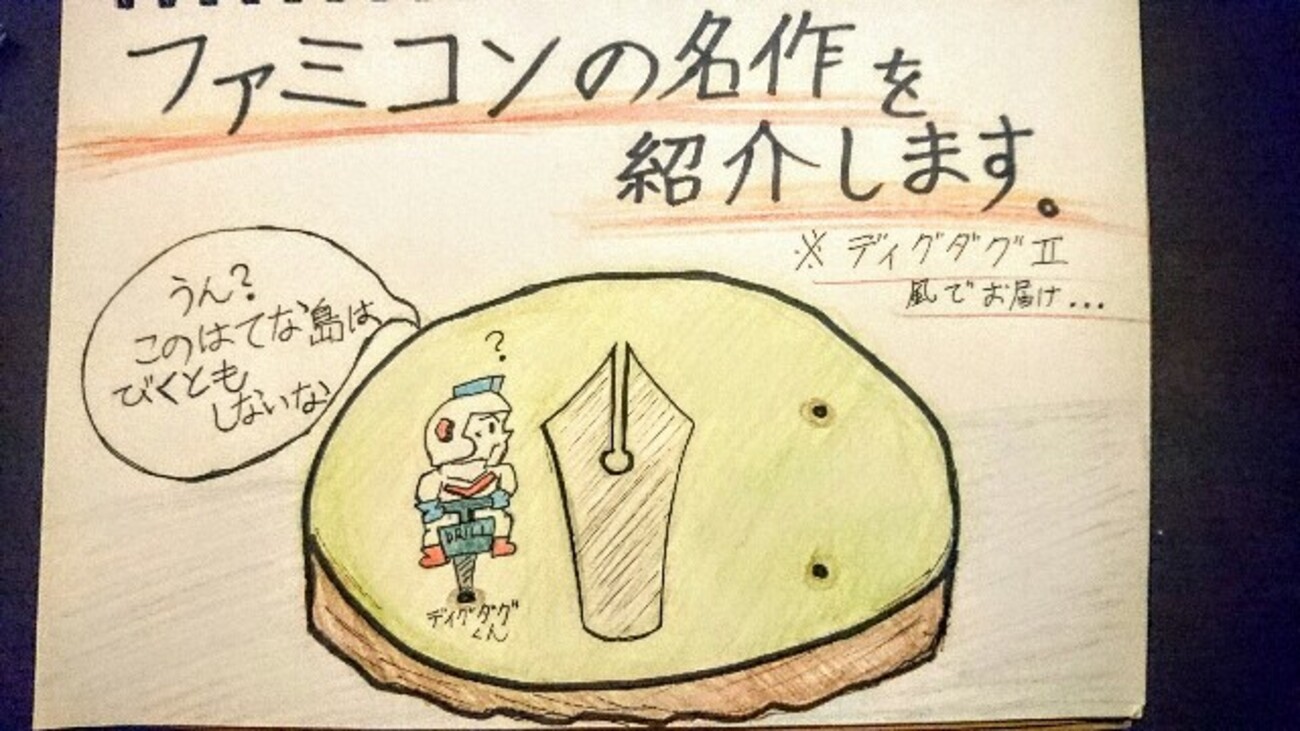 ファミコンの名作を
紹介します。
※ディグダグⅡ
風でお届け...
うん?
このはてな島は
びくとも
しないな
?
DRILL
ディグダグ
くん